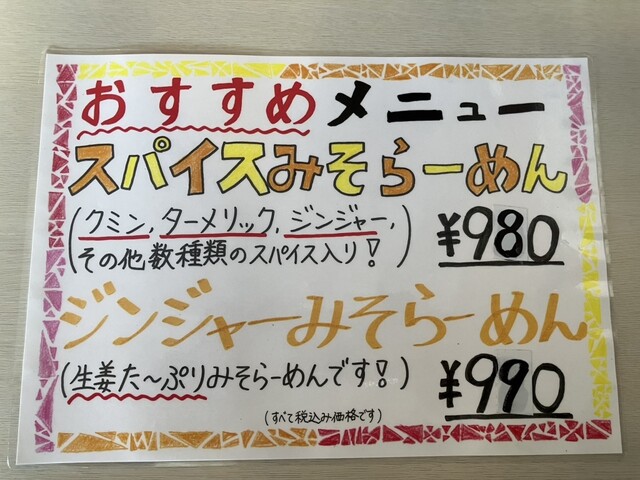 おすすめメニュー
スパイスみそらーめん
(クミン,ターメリック,ジンジャー,
その他数種類のスパイス入り!)
¥980
ジンジャーみそらーめん
(生姜た〜ぷりみそらーめんです!)
¥990
(すべて税込み価格です)